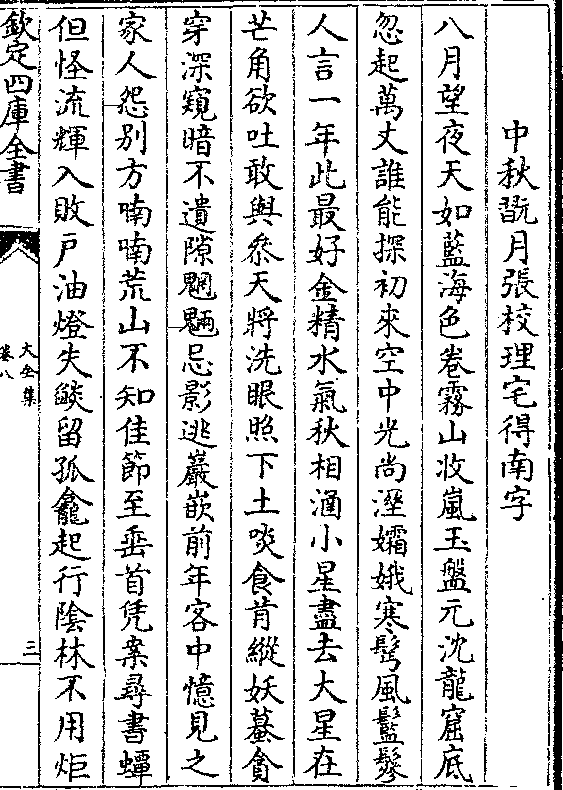 中秋翫月張校理宅得南字
八月望夜天如藍海色卷霧山收嵐玉盤元沈龍窟底
忽起萬丈誰能探初來空中光尚溼孀娥寒髩風鬖鬖
人言一年此最好金精水氣秋相涵小星盡去大星在
芒角欲吐敢與叅天將洗眼照下土啖食肯縱妖蟇貪
穿深窺暗不遺隙魍魎忌影逃巖嵌前年客中憶見之
家人怨别方喃喃荒山不知佳節至垂首凭案尋書蟫
但怪流輝入敗戸油燈失燄留孤龕起行陰林不用炬
欽定四庫全書
大全集
卷八
三